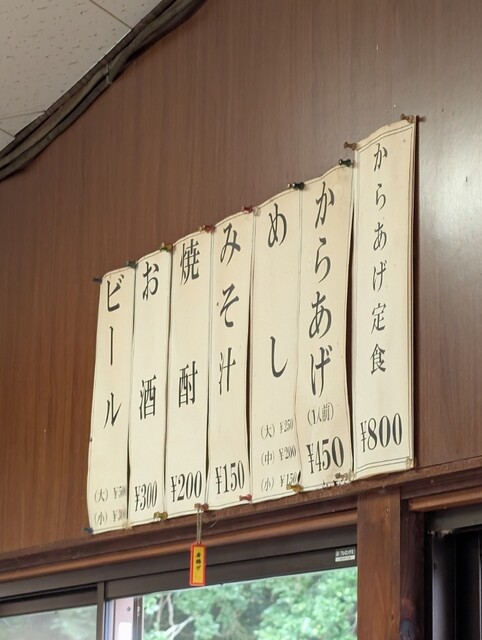 からあげ定食
¥800
からあげ
(1人前)
¥450
めし
(大) ¥250
(中) ¥200
(小) ¥150
みそ汁
¥150
焼酎
¥200
お酒
¥300
ビール
(大)
(小)